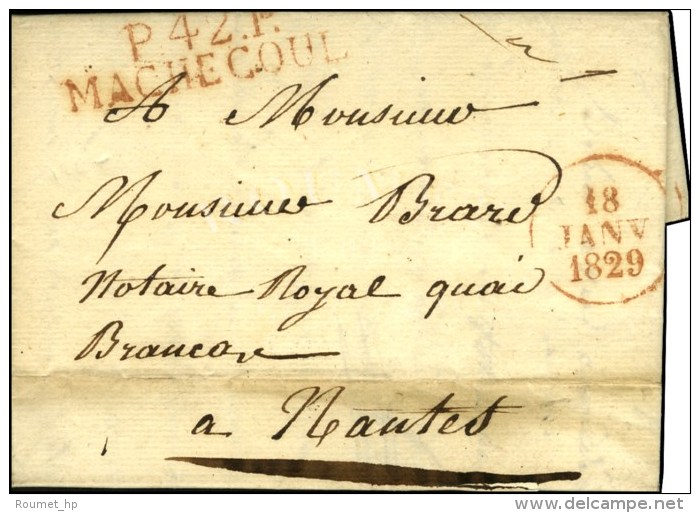 P.42.P.
MACHECOUL
A Monsieur
Monsieur Brard
Notaire Royal quai
Brancas
a Nantes
18
JANV
1829
Roumet_hp
www.delcampe.net